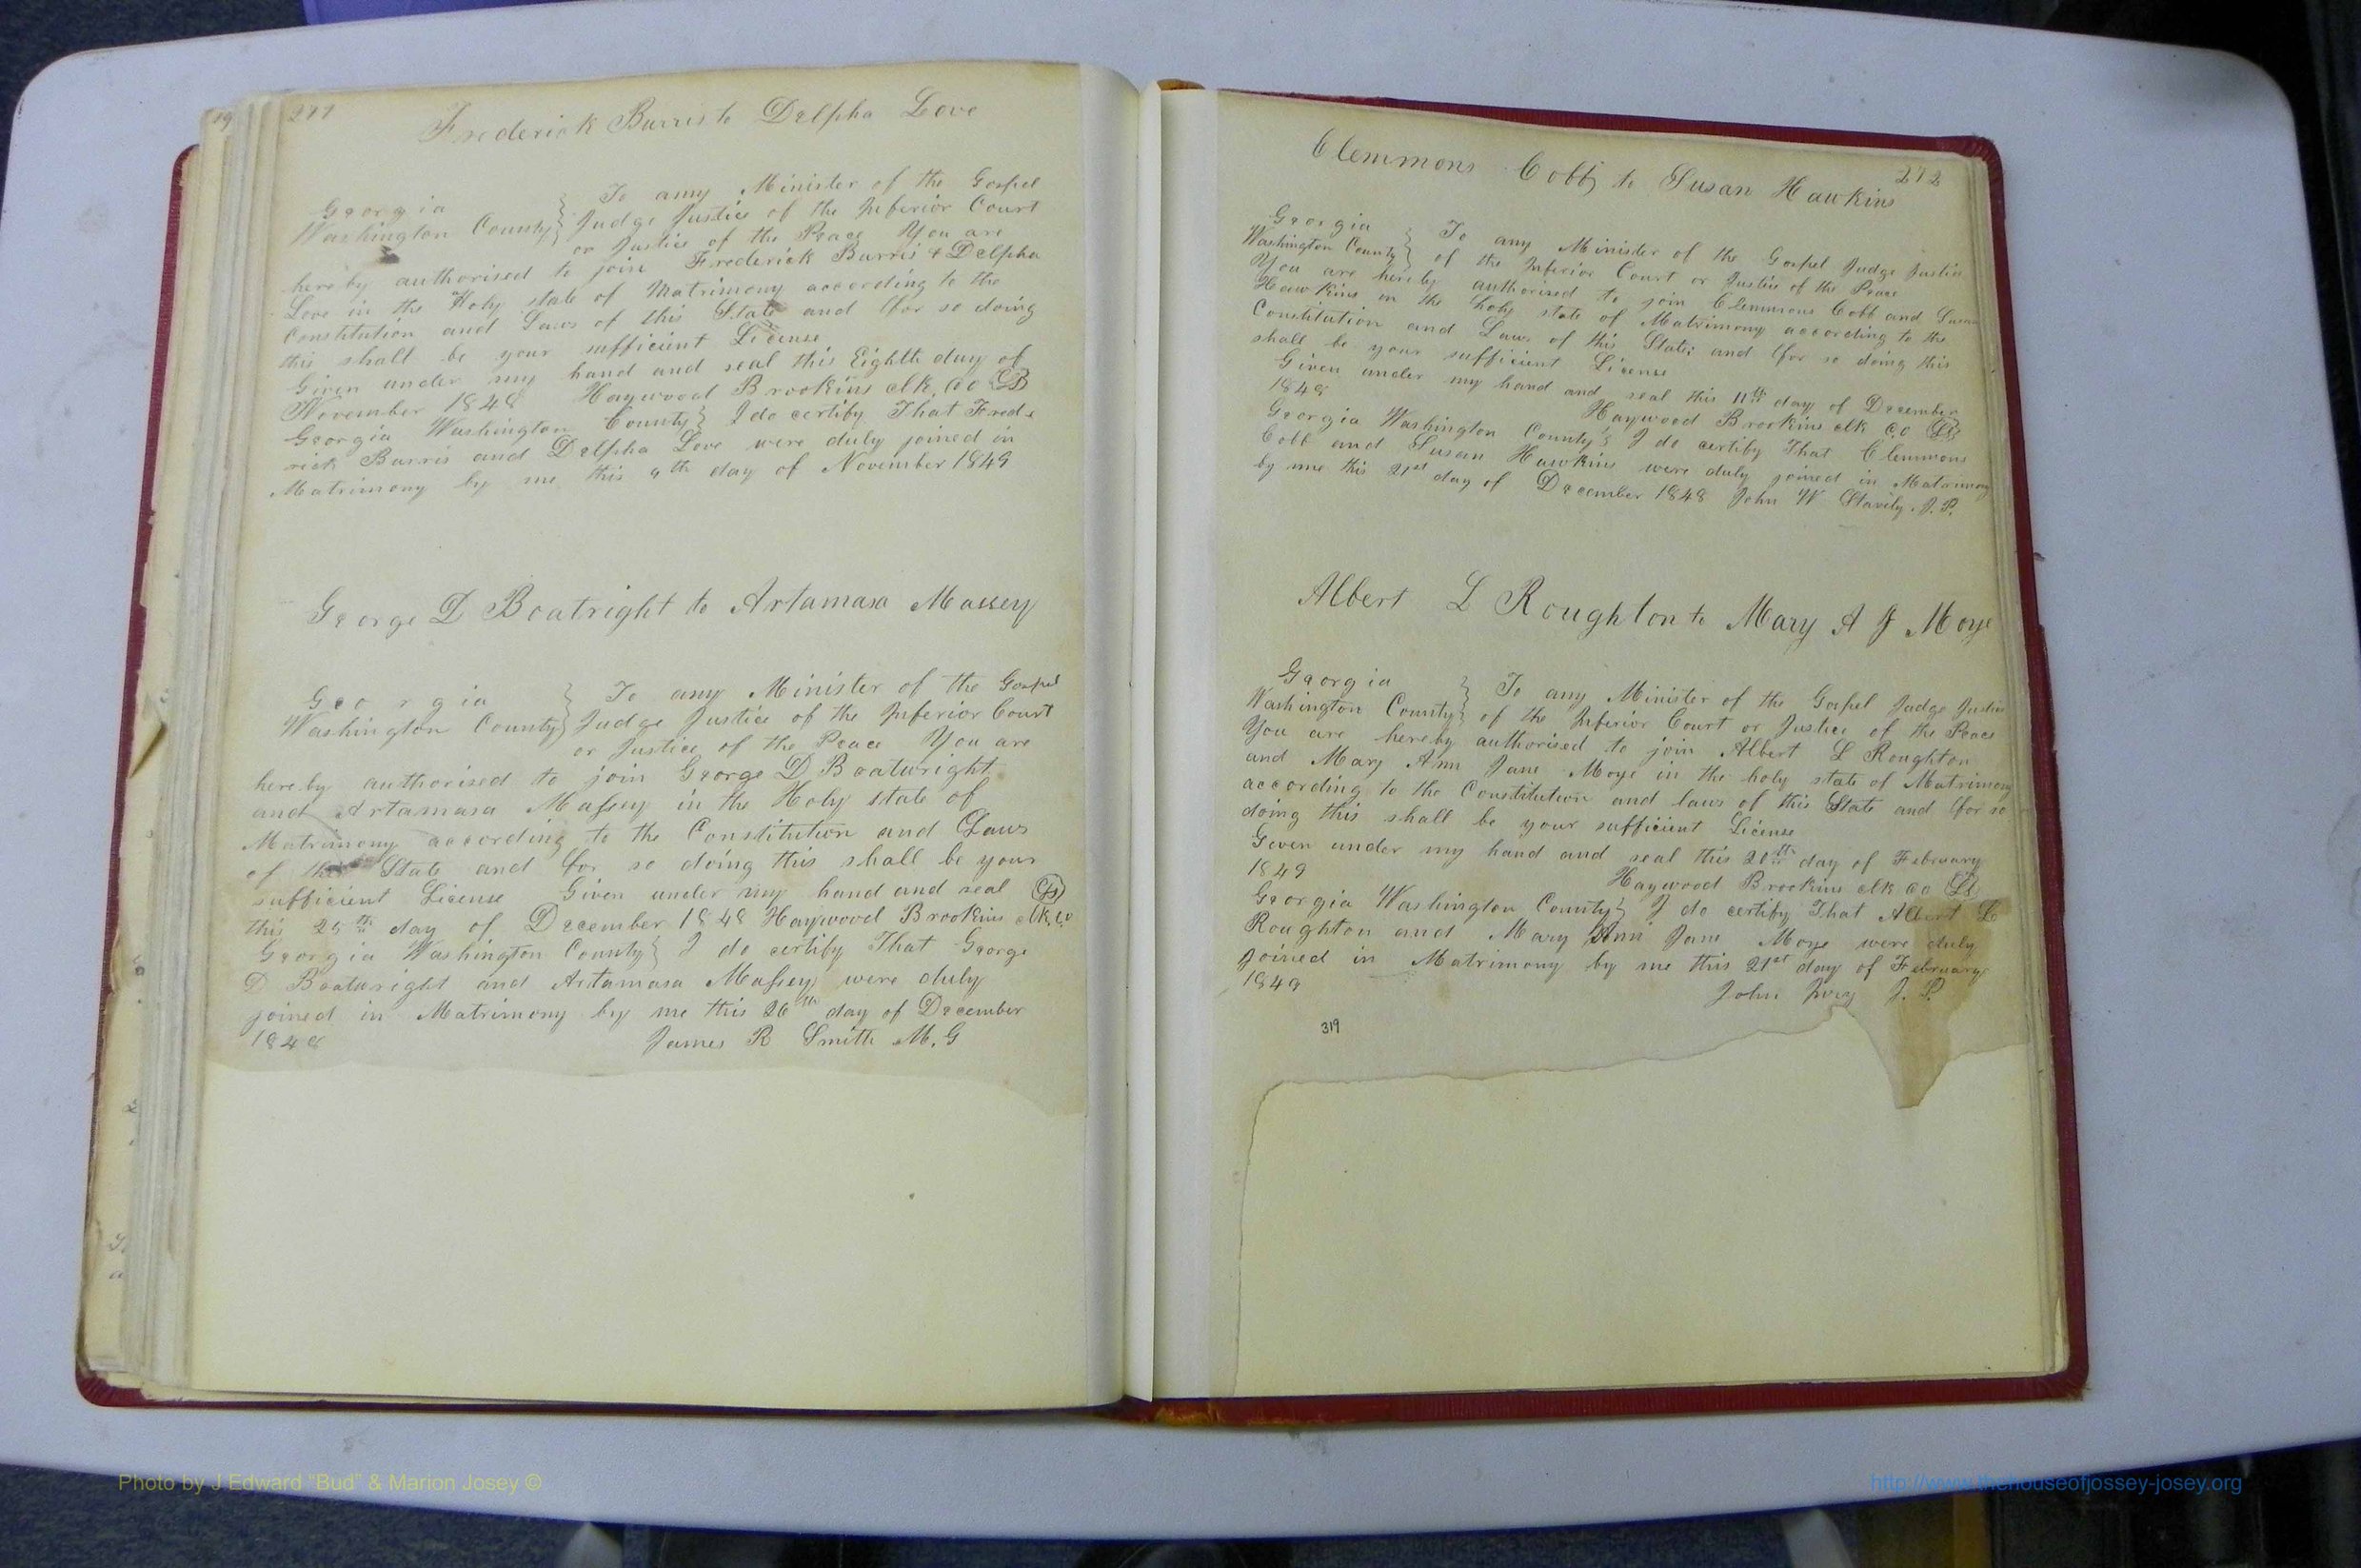 271
Frederick Burris to Delpha Love
Georgia } To any Minister of the Gospel
Washington County } Judge Justice of the Inferior Court
or Justice of the Peace You are
hereby authorised to join Frederick Burris & Delpha
Love in the Holy state of Matrimony according to the
Constitution and Laws of this State and for so doing
this shall be your sufficient License
Given under my hand and seal this Eighth day of
November 1848 Haywood Brookins clk. co
Georgia Washington County } I do certify That Fred-
rick Burris and Delpha Love were duly joined in
Matrimony by me this 9th day of November 1849
George D Boatright to Artamasa Massey
Georgia } To any Minister of the Gospel
Washington County } Judge Justice of the Inferior Court
or Justice of the Peace You are
hereby authorised to join George D Boatwright
and Artamasa Massey in the Holy state of
Matrimony according to the Constitution and Laws
of this State and for so doing this shall be your
sufficient License Given under my hand and seal
this 25th day of December 1848 Haywood Brookins clk. co
Georgia Washington County } I do certify That George
D Boatwright and Artamasa Massey were duly
joined in Matrimony by me this 26th day of December
1848 James R Smith M. G
272
Clemmons Cobb to Susan Hawkins
Georgia } To any Minister of the Gospel Judge Justice
Washington County } of the Inferior Court or Justice of the Peace
You are hereby authorised to join Clemmons Cobb and Susan
Hawkins in the holy state of Matrimony according to the
Constitution and Laws of this State; and for so doing this
shall be your sufficient License
Given under my hand and seal this 11th day of December
1848 Haywood Brookins clk c.o
Georgia Washington County } I do certify That Clemmons
Cobb and Susan Hawkins were duly joined in Matrimony
by me this 21st day of December 1848 John W J. P.
Albert L Roughton to Mary A J Moye
Georgia } To any Minister of the Gospel Judge Justice
Washington County } of the Inferior Court or Justice of the Peace
You are hereby authorised to join Albert L Roughton
and Mary Ann Jane Moye in the holy state of Matrimony
according to the Constitution and laws of this State and for so
doing this shall be your sufficient License
Given under my hand and seal this day of February
1849 Haywood Brookins clk co
Georgia Washington County } I do certify That Albert L
Roughton and Mary Ann Jane Moye were duly
joined in Matrimony by me this 21st day of February
1849 John J. P.
319
Photo by J Edward "Bud" & Marion Josey ©
http://www.thehouseofjossey-josey.org